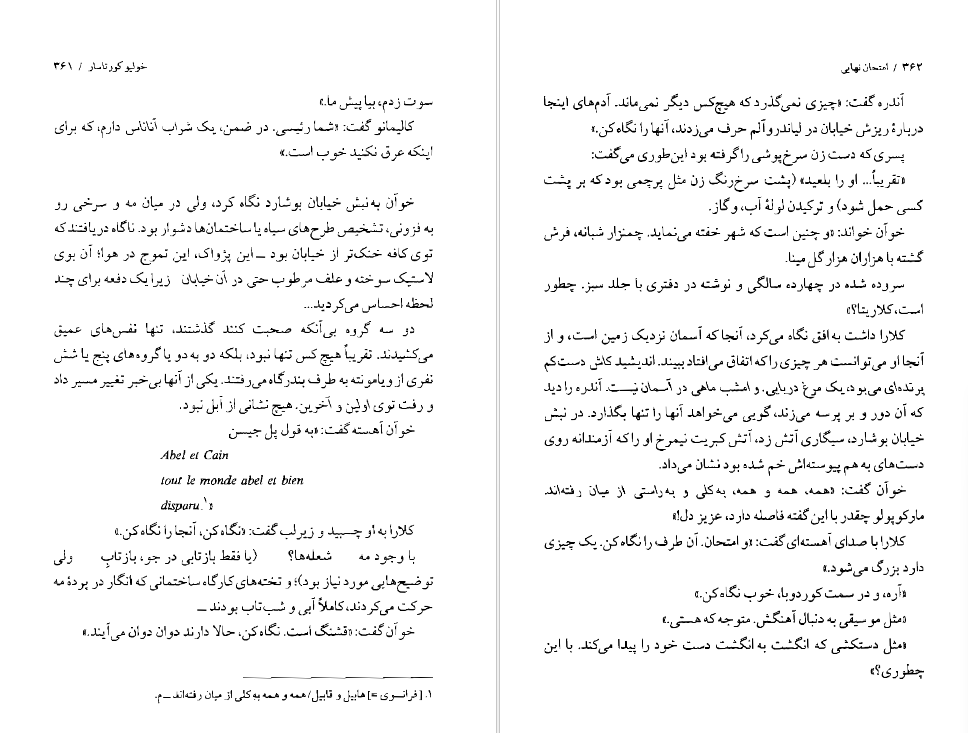 خولیو کورتاسار / ۳۶۱
سوت زدم، بیا پیش ما.»
کالیمانو گفت: «شما رئیسی. در ضمن، یک شراب آناناس دارم، که برای
اینکه عرق نکنید خوب است.»
خوآن به‌نبش خیابان بوشارد نگاه کرد، ولی در میان مه و سرخی رو
به فزونی، تشخیص طرح‌های سیاه یا ساختمان‌ها دشوار بود. ناگاه دریافتند که
توی کافه خنک‌تر از خیابان بود ــ این پژواک، این تموج در هوا؛ آن بوی
لاستیک سوخته و علف مرطوب حتی در آن خیابان زیرا یک دفعه برای چند
لحظه احساس می‌کردید...
دو سه گروه بی‌آنکه صحبت کنند گذشتند، تنها نفس‌های عمیق
می‌کشیدند. تقریباً هیچ کس تنها نبود، بلکه دو به دو یا گروه‌های پنج یا شش
نفری از ویامونته به طرف بندرگاه می‌رفتند. یکی از آنها بی‌خبر تغییر مسیر داد
و رفت توی اولین و آخرین. هیچ نشانی از آبل نبود.
خوآن آهسته گفت: «به قول پل جیسن
Abel et Cain
tout le monde abel et bien
disparu.۱»
کلارا به او چسبید و زیرلب گفت: «نگاه کن، آنجا را نگاه کن.»
با وجود مه شعله‌ها؟ (یا فقط بازتابی در جو، بازتابِ ولی
توضیح‌هایی مورد نیاز بود)؛ و تخته‌های کارگاه ساختمانی که انگار در پردهٔ مه
حرکت می‌کردند، کاملاً آبی و شب‌تاب بودند ــ
خوآن گفت: «قشنگ است. نگاه کن، حالا دارند دوان دوان می‌آیند.»
۱. [فرانسوی =] هابیل و قابیل/ همه و همه به‌کلی از میان رفته‌اند ــ م.
۳۶۲ / امتحان نهایی
آندره گفت: «چیزی نمی‌گذرد که هیچ‌کس دیگر نمی‌ماند. آدم‌های اینجا
دربارهٔ ریزش خیابان در لیاندروآلم حرف می‌زدند، آنها را نگاه کن.»
پسری که دست زن سرخ‌پوشی را گرفته بود این‌طوری می‌گفت:
«تقریباً... او را بلعید» (پشت سرخ‌رنگ زن مثل پرچمی بود که بر پشت
کسی حمل شود) و ترکیدن لولهٔ آب، و گاز.
خوآن خواند: «و چنین است که شهر خفته می‌نماید. چمنزار شبانه، فرش
گشته با هزاران هزار گل مینا.
سروده شده در چهارده سالگی و نوشته در دفتری با جلد سبز. چطور
است، کلاریتا؟»
کلارا داشت به افق نگاه می‌کرد، آنجا که آسمان نزدیک زمین است، و از
آنجا او می‌توانست هر چیزی را که اتفاق می‌افتاد ببیند. اندیشید کاش دست‌کم
پرنده‌ای می‌بود، یک مرغ دریایی. و امشب ماهی در آسمان نیست. آندره را دید
که آن دور و بر پرسه می‌زند، گویی می‌خواهد آنها را تنها بگذارد. در نبش
خیابان بوشارد، سیگاری آتش زد، آتش کبریت نیمرخ او را که آزمندانه روی
دست‌های به هم پیوسته‌اش خم شده بود نشان می‌داد.
خوآن گفت: «همه، همه و همه، به‌کلی و به‌راستی از میان رفته‌اند.
مارکوپولو چقدر با این گفته فاصله دارد، عزیز دل!»
کلارا با صدای آهسته‌ای گفت: «و امتحان. آن طرف را نگاه کن. یک چیزی
دارد بزرگ می‌شود.»
«آره، و در سمت کوردوبا، خوب نگاه کن.»
«مثل موسیقی به دنبال آهنگش. متوجه که هستی.»
«مثل دستکشی که انگشت به انگشت دست خود را پیدا می‌کند. با این
چطوری؟»